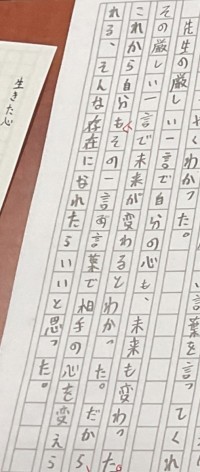 い言葉を言ってくれ
くわかった。
先生の厳しい一言で自分の心も、未来も変わった。
その厳しい一言で未来が変わるとわかった。だから、
これから自分もその一言の言葉で相手の心を変えら
れる、そんな存在になれたらいいと思った。
生きた心